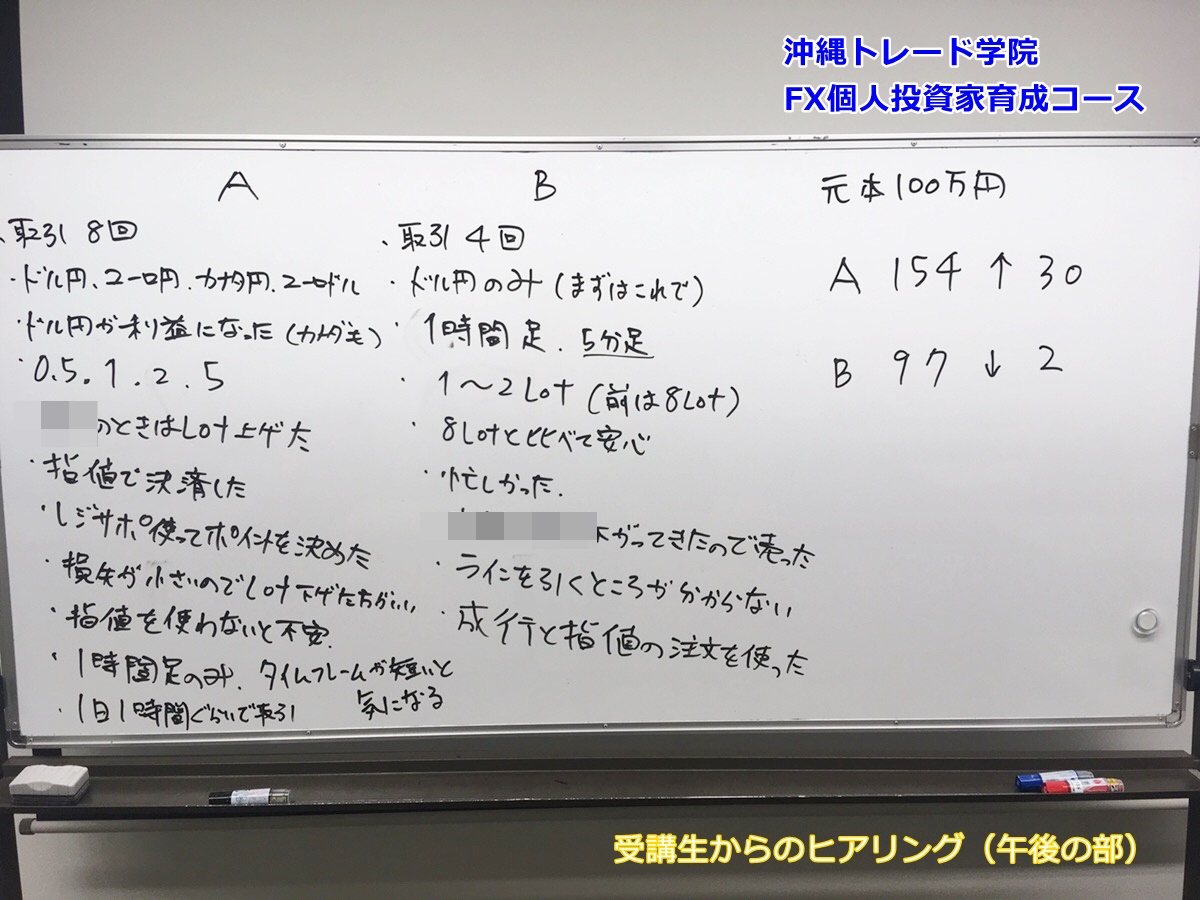 沖縄トレード学院
FX個人投資家育成コース
A
、取引 8回
・ドル円、ユーロ円、カナダ円、ユーロドル
ドル円が利益になった(カナダも)
・0.5. 1. 2. 5
のときはLot上げた
・指値で決済した
・レジサポ使ってポイントを決めた
・損失が小さいのでLot下げた方がいい
・指値を使わないと不安.
・1時間足のみ. タイムフレームが短いと
気になる
・1日1時間ぐらいで取引
B
、取引 4回
・ドル円のみ(まずはこれで)
・1時間足. 5分足
・1〜2Lot (前は8Lot)
・8Lotと比べて安心
・忙しかった.
下がってきたので売った
・ラインを引くところが分からない
・成行と指値の注文を使った
元本100万円
A 154 ↑ 30
B 97 ↓ 2
受講生からのヒアリング(午後の部)